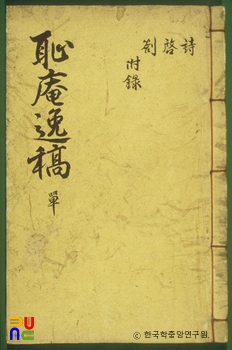 恥庵逸稿 單
詩
啓
劄
附錄
ⓒ 한국학중앙연구원